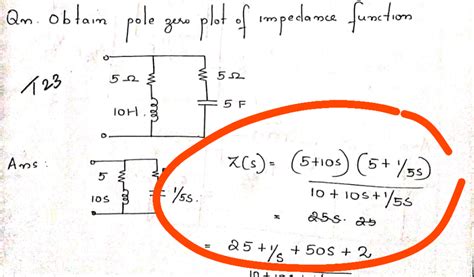 Qn. Obtain pole zero plot of impedance function
T23
5Ω
5Ω
10H
5 F
Ans:
5
10s
1/5s.
Z(s) = (5+10s) (5 + 1/5s)
10 + 10s + 1/5s
= 25s. 25
= 25 + 1/s + 50s + 2